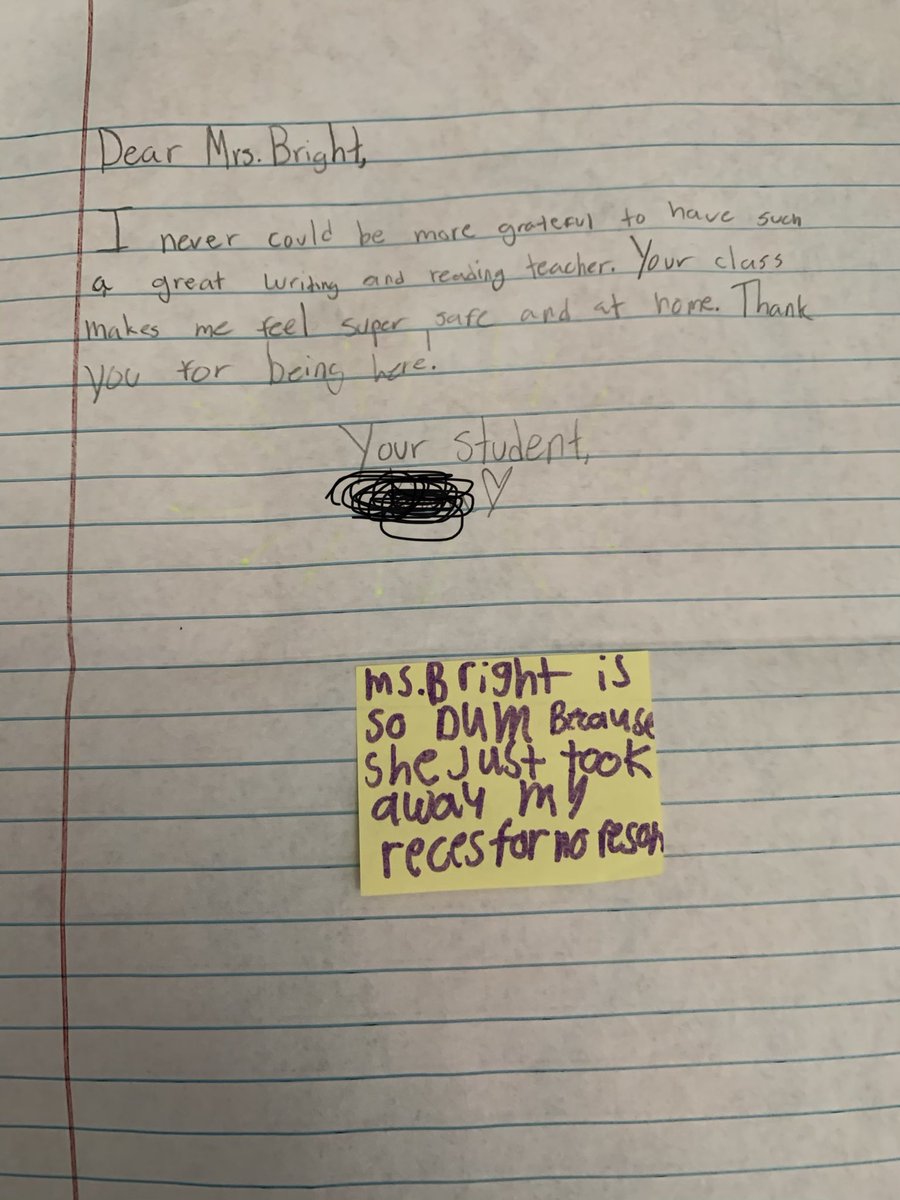 Dear Mrs. Bright,
I never could be more grateful to have such
a great writing and reading teacher. Your class
makes me feel super safe and at home. Thank
you for being here!
Your student,
Ms.Bright is
so DUM Because
she Just took
away my
reces for no reson